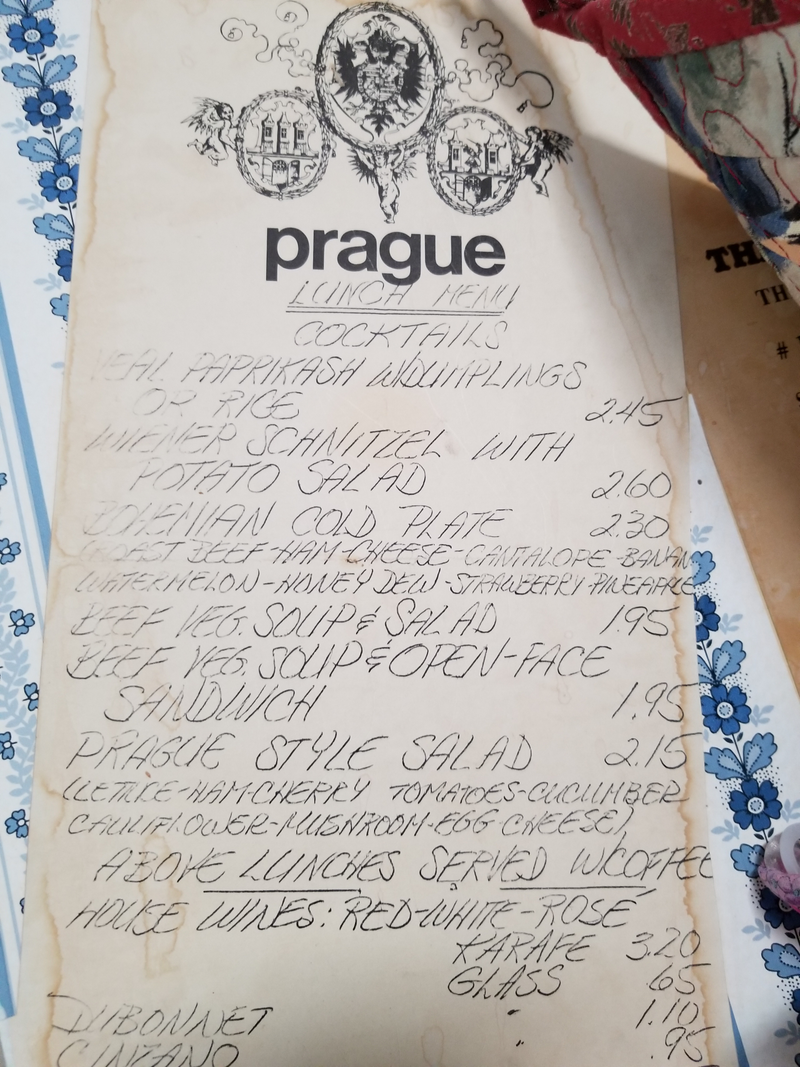 prague
LUNCH MENU
COCKTAILS
VEAL PAPRIKASH W/DUMPLINGS
OR RICE 2.45
WIENER SCHNITZEL WITH
POTATO SALAD 2.60
BOHEMIAN COLD PLATE 2.30
(ROAST BEEF-HAM-CHEESE-CANTALOPE-BANAN
WATERMELON-HONEY DEW-STRAWBERRY-PINEAPPLE
BEEF VEG. SOUP & SALAD 1.95
BEEF VEG. SOUP & OPEN-FACE
SANDWICH 1.95
PRAGUE STYLE SALAD 2.15
(LETTUCE-HAM-CHERRY TOMATOES-CUCUMBER
CAULIFLOWER-MUSHROOM-EGG-CHEESE)
ABOVE LUNCHES SERVED W/COFFEE
HOUSE WINES: RED-WHITE-ROSÉ
KARAFE 3.20
GLASS .65
DUBONNET " 1.10
CINZANO " .95
TH
TH
#